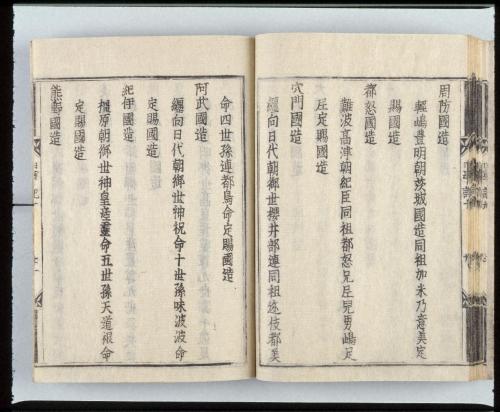 周防國造
輕嶋豊明朝茨城國造同祖加米乃意美定
賜國造
都怒國造
難波高津朝紀臣同祖都怒足尼兒男嶋足
尼定賜國造
穴門國造
纏向日代朝御世櫻井部連同祖迩伎都美
命四世孫連都鳥命定賜國造
阿武國造
纏向日代朝御世神祝命十世孫味波波命
定賜國造
紀伊國造
橿原朝御世神皇産靈命五世孫天道根命
定賜國造
熊野國造